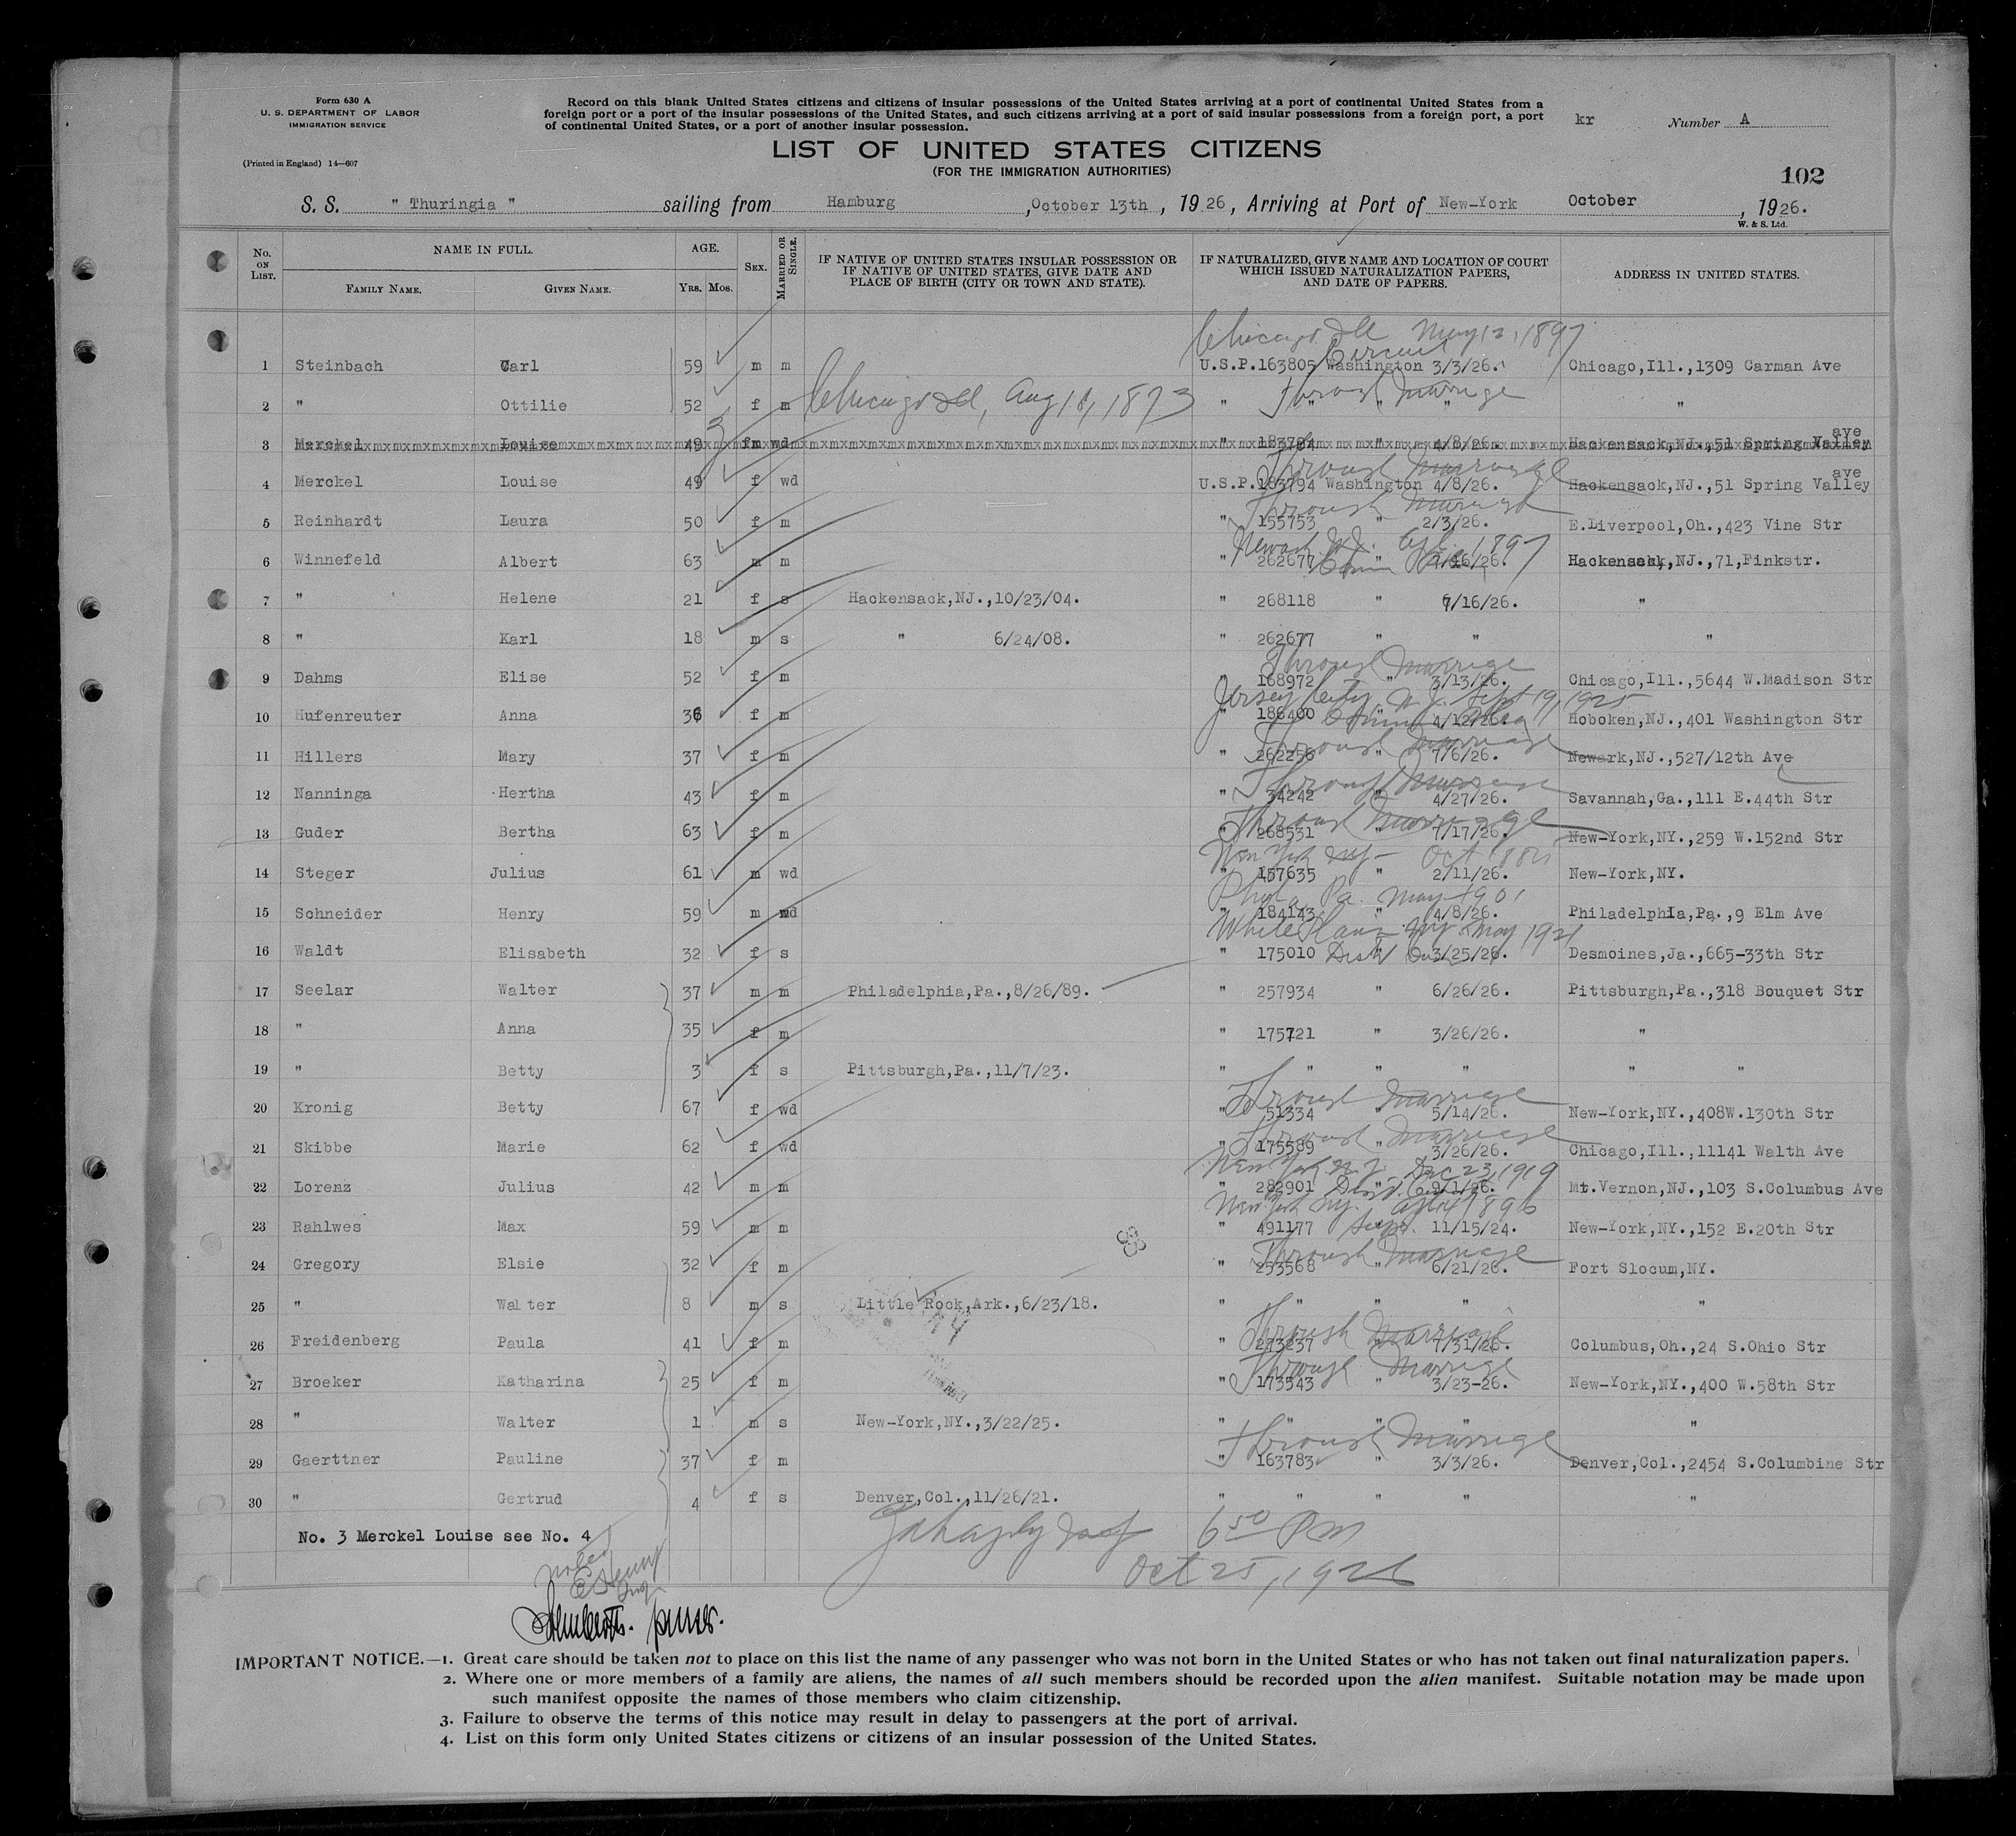 Form 630 A
U. S. DEPARTMENT OF LABOR
IMMIGRATION SERVICE
(Printed in England) 14—607
Record on this blank United States citizens and citizens of insular possessions of the United States arriving at a port of continental United States from a
foreign port or a port of the insular possessions of the United States, and such citizens arriving at a port of said insular possessions from a foreign port, a port
of continental United States, or a port of another insular possession.
kr Number A
LIST OF UNITED STATES CITIZENS
(FOR THE IMMIGRATION AUTHORITIES)
102
S. S. " Thuringia " sailing from Hamburg , October 13th , 1926 , Arriving at Port of New-York October , 1926.
W. & S. Ltd.
No. ON LIST. NAME IN FULL. AGE. SEX. MARRIED OR SINGLE. IF NATIVE OF UNITED STATES INSULAR POSSESSION OR IF NATIVE OF UNITED STATES, GIVE DATE AND PLACE OF BIRTH (CITY OR TOWN AND STATE). IF NATURALIZED, GIVE NAME AND LOCATION OF COURT WHICH ISSUED NATURALIZATION PAPERS, AND DATE OF PAPERS. ADDRESS IN UNITED STATES.
FAMILY NAME. GIVEN NAME. YRS. MOS.
Chicago Ill May 12, 1897
Circuit
1 Steinbach Carl 59 m m U.S.P.163805 Washington 3/3/26. Chicago,Ill.,1309 Carman Ave
2 " Ottilie 52 f m Chicago Ill, Aug 18, 1873 " " " " Through Marriage "
3 Merckel Louise 49 f wd " 183794 " 4/8/26. Hackensack,NJ.,51 Spring Valley ave
Through Marriage
4 Merckel Louise 49 f wd U.S.P.183794 Washington 4/8/26. Hackensack,NJ.,51 Spring Valley ave
Through Marriage
5 Reinhardt Laura 50 f m " 155753 " 2/3/26. E.Liverpool,Oh.,423 Vine Str
Newark N.J. 1897
6 Winnefeld Albert 63 m m " 262677 " 7/16/26. Hackensack,NJ.,71,Finkstr.
7 " Helene 21 f s Hackensack,NJ.,10/23/04. " 268118 " 7/16/26. "
8 " Karl 18 m s " 6/24/08. " 262677 " " "
Through Marriage
9 Dahms Elise 52 f m " 168972 " 3/13/26. Chicago,Ill.,5644 W.Madison Str
Jersey City N.J. Sept 19, 1925
10 Hufenreuter Anna 36 f m " 186400 " 4/12/26. Hoboken,NJ.,401 Washington Str
Through Marriage
11 Hillers Mary 37 f m " 262256 " 7/6/26. Newark,NJ.,527/12th Ave
Through Marriage
12 Nanninga Hertha 43 f m " 34242 " 4/27/26. Savannah,Ga.,111 E.44th Str
Through Marriage
13 Guder Bertha 63 f m " 268531 " 7/17/26. New-York,NY.,259 W.152nd Str
New York NY — Oct
14 Steger Julius 61 m wd " 157635 " 2/11/26. New-York,NY.
Phila Pa. May 1901
15 Schneider Henry 59 m wd " 184143 " 4/8/26. Philadelphia,Pa.,9 Elm Ave
White Plains NY May 1921
16 Waldt Elisabeth 32 f s " 175010 Dist 3/25/26. Desmoines,Ja.,665-33th Str
17 Seelar Walter 37 m m Philadelphia,Pa.,8/26/89. " 257934 " 6/26/26. Pittsburgh,Pa.,318 Bouquet Str
18 " Anna 35 f m " 175721 " 3/26/26. "
19 " Betty 3 f s Pittsburgh,Pa.,11/7/23. " " " " " "
Through Marriage
20 Kronig Betty 67 f wd " 51334 " 5/14/26. New-York,NY.,408W.130th Str
Through Marriage
21 Skibbe Marie 62 f wd " 175589 " 3/26/26. Chicago,Ill.,11141 Walth Ave
New York N.Y. Dec 23, 1919
22 Lorenz Julius 42 m m " 282901 Dist. 9/1/26. Mt.Vernon,NJ.,103 S.Columbus Ave
New York NY. 1896
23 Rahlwes Max 59 m m " 491177 Supr. 11/15/24. New-York,NY.,152 E.20th Str
Through Marriage
24 Gregory Elsie 32 f m " 253568 " 6/21/26. Fort Slocum,NY.
25 " Walter 8 m s Little Rock,Ark.,6/23/18. " " " " "
Through Marriage
26 Freidenberg Paula 41 f m " 273237 " 7/31/26. Columbus,Oh.,24 S.Ohio Str
Through Marriage
27 Broeker Katharina 25 f m " 173543 " 3/23-26. New-York,NY.,400 W.58th Str
28 " Walter 1 m s New-York,NY.,3/22/25. " " " " "
Through Marriage
29 Gaerttner Pauline 37 f m " 163783 " 3/3/26. Denver,Col.,2454 S.Columbine Str
30 " Gertrud 4 f s Denver,Col.,11/26/21. " " " " "
No. 3 Merckel Louise see No. 4
6 50 PM
Oct 25, 1926
IMPORTANT NOTICE.—1. Great care should be taken not to place on this list the name of any passenger who was not born in the United States or who has not taken out final naturalization papers.
2. Where one or more members of a family are aliens, the names of all such members should be recorded upon the alien manifest. Suitable notation may be made upon
such manifest opposite the names of those members who claim citizenship.
3. Failure to observe the terms of this notice may result in delay to passengers at the port of arrival.
4. List on this form only United States citizens or citizens of an insular possession of the United States.